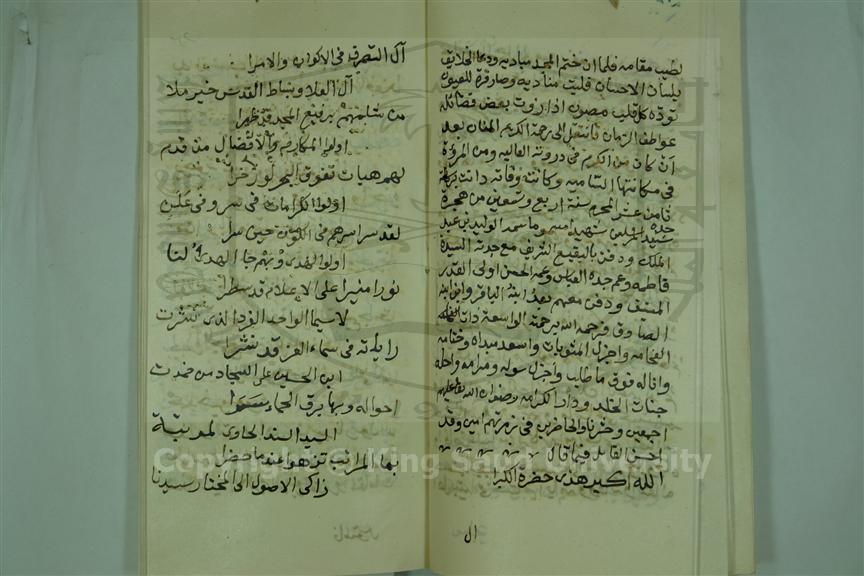 لطيب مقامه فلما ان ختم المجد مباديه ودعا الخلايق
بلسان الاحسان فلبت مناديه وصار قرة للعيون
توده كل قلب مصون اذا روت بعض فضائله
عواطف الزمان فانتقل الى رحمة الكريم المنان بعد
أن كان من اكرم في دروته العاليه ومن المروءة
في مكانتها الساميه وكانت وفاته
ثامن عشر المحرم سنة اربع وتسعين من هجرة
جده سيد المرسلين شهيدا مسموما سمه الوليد بن عبد
الملك ودفن بالبقيع الشريف مع جدته السيدة
فاطمه وعم جده العباس وعمه الحسن اولى القدر
المنيف ودفن معهم بعد ابنه الباقر وابن ابنه
الصادق فرحمه الله برحمته الواسعة ذات
الفخامه واجزل المثوبات واسعد مبداه وختامه
واناله فوق ما طلب واجزل سوله ومرامه واحله
جنات الخلد ودار الكرامه رضوان الله تعالى عليهم
اجمعين وحشرنا والحاضرين في زمرتهم امين وقد
احسن القايل فيما قال
الله اكبر هذى حضرة الكبرا
ال
آل التصرف في الاكوان والامرا
آل العلا وبساط القدس خير ملا
من شانهم برفيع المجد قد ظهرا
اولوا المكارم والافضال من قدم
لهم هبات تفوق البحر لو زخرا
اولوا الكرامات في سر وفي علن
لقد سرا سرهم في الكون حين سرا
اولوا الهدى وبهم جا الهدى لنا
نورا منيرا على الاعلام قد سطرا
لاسيما الواحد الفرد الذى نشرت
راياته في سماء العز قد نشرا
ابن الحسين على السجاد من حمدت
احواله وبها برق الحما
السيد السند الحاوى لمرتبة
بها المراتب تزهو عند ما حضرا
زاكى الاصول الى المختار سيدنا